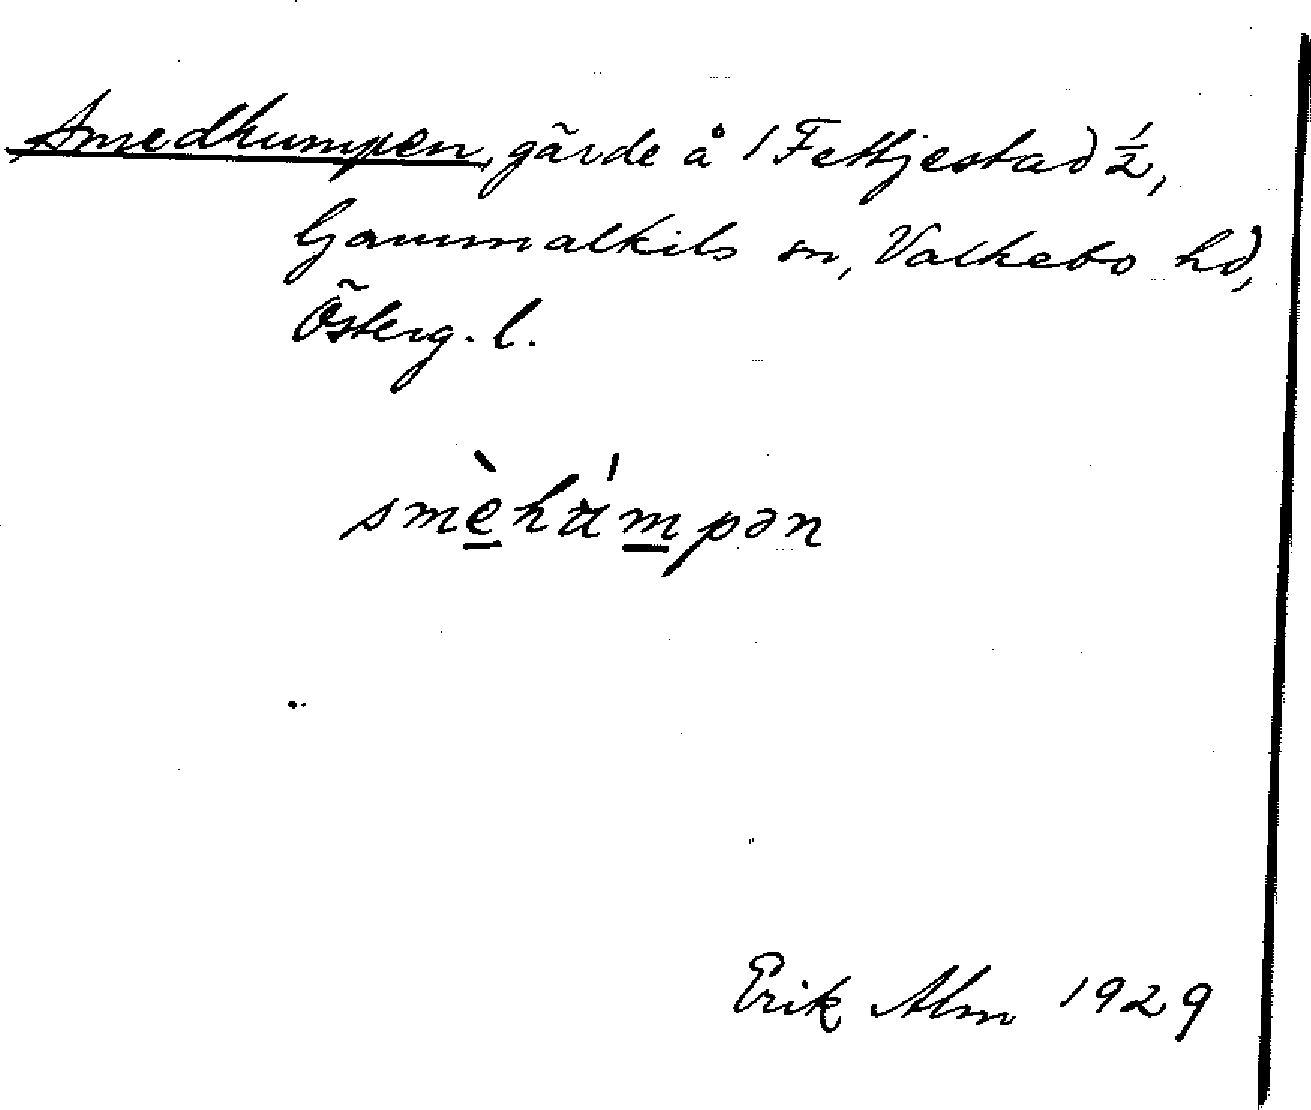 Smedhumpen, gärde å 1 Fettjestad ½,
Gammalkils sn, Valkebo hd,
Österg. l.
smèhá́mpən
Erik Alm 1929